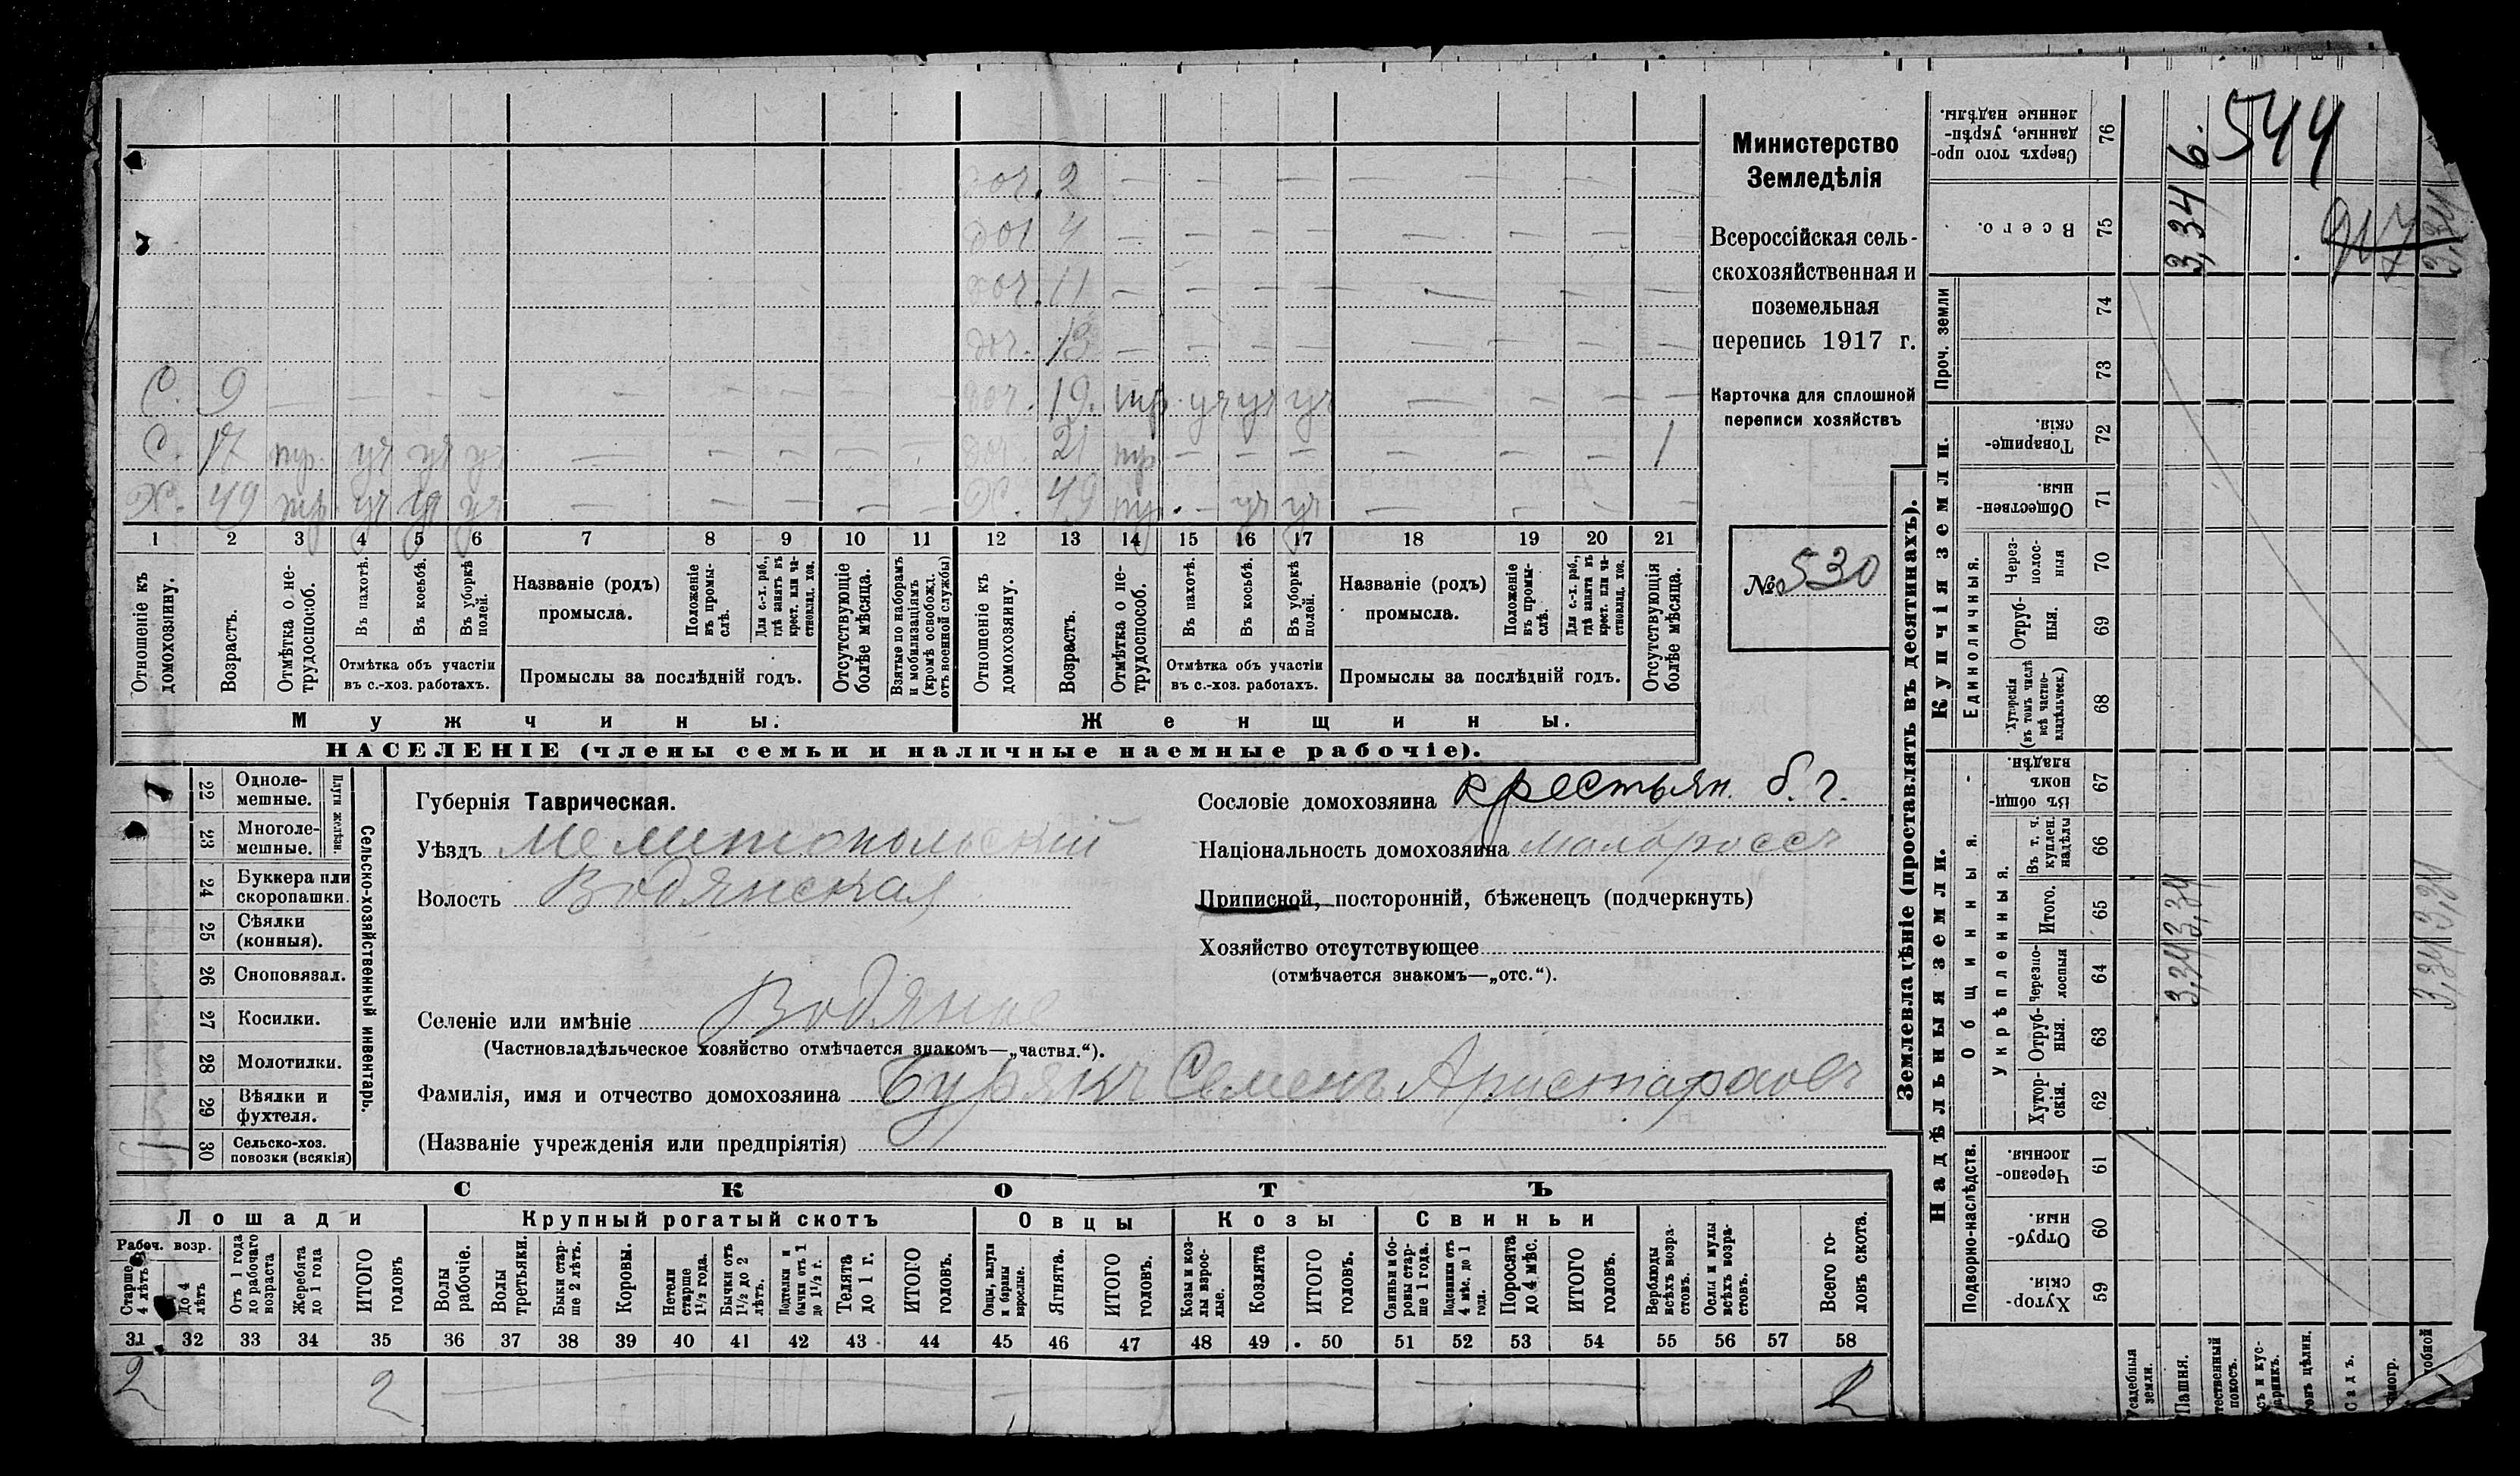 доч. 2 — — — — — — — —
доч 4 — — — — — — — —
доч. 11 — — — — — — — —
доч. 13 — — — — — — — —
С. 9 — — — — — — — — — доч. 19. тр. уч уч уч — — — —
С. 17 тр. уч уч уч — — — — — доч. 21 тр — — — — — — 1
Х. 49 тр. уч уч уч — — — — — Х. 49 тр. — уч уч — — — —
1 2 3 4 5 6 7 8 9 10 11 12 13 14 15 16 17 18 19 20 21
Отношеніе къ домохозяину.
Возрастъ.
Отмѣтка о не-трудоспособ.
Въ пахотѣ.
Въ косьбѣ.
Въ уборкѣ полей.
Отмѣтка объ участіи
въ с.-хоз. работахъ.
Названіе (родъ)
промысла.
Положеніе въ промы-слѣ.
Для с.-х. раб., гдѣ занятъ въ крест. или ча-стновлад. хоз.
Промыслы за послѣдній годъ.
Отсутствующіе болѣе мѣсяца.
Взятые по наборамъ и мобилизаціямъ (кромѣ освобожд. отъ военной службы)
Отношеніе къ домохозяину.
Возрастъ.
Отмѣтка о не-трудоспособ.
Въ пахотѣ.
Въ косьбѣ.
Въ уборкѣ полей.
Отмѣтка объ участіи
въ с.-хоз. работахъ.
Названіе (родъ)
промысла.
Положеніе въ промы-слѣ.
Для с.-х. раб., гдѣ занята въ крест. или ча-стновлад. хоз.
Промыслы за послѣдній годъ.
Отсутствующія болѣе мѣсяца.
Мужчины.
Женщины.
НАСЕЛЕНІЕ (члены семьи и наличные наемные рабочіе).
Министерство
Земледѣлія
Всероссійская сель-
скохозяйственная и
поземельная
перепись 1917 г.
Карточка для сплошной
переписи хозяйствъ
№ 530
Сельско-хозяйственный инвентарь.
Плуги желѣзн.
22 Одноле-мешные.
23 Многоле-мешные.
24 Буккера или скоропашки.
25 Сѣялки (конныя).
26 Сноповязал.
27 Косилки.
28 Молотилки.
29 Вѣялки и фухтеля.
30 Сельско-хоз. повозки (всякія)
Губернія Таврическая.
Уѣздъ Мелитопольскій
Волость Водянская
Сословіе домохозяина крестьян. б. г.
Національность домохозяина малороссъ
Приписной, посторонній, бѣженецъ (подчеркнуть)
Хозяйство отсутствующее
(отмѣчается знакомъ—„отс.“).
Селеніе или имѣніе Водяное
(Частновладѣльческое хозяйство отмѣчается знакомъ—„частвл.“).
Фамилія, имя и отчество домохозяина Бурякъ Семенъ Аристарховъ
(Названіе учрежденія или предпріятія)
СКОТЪ
Лошади
Крупный рогатый скотъ
Овцы
Козы
Свиньи
Рабоч. возр.
Старше 4 лѣтъ
до 4 лѣтъ
Отъ 1 года до рабочаго возраста
Жеребята до 1 года
ИТОГО головъ
Волы рабочіе.
Волы третьяки.
Быки стар-ше 2 лѣтъ.
Коровы.
Нетели старше 1½ года.
Бычки отъ 1½ до 2 лѣтъ.
Подтелки и бычки отъ 1 до 1½ г.
Телята до 1 г.
ИТОГО головъ.
Овцы, валухи и бараны взрослые.
Ягнята.
ИТОГО головъ.
Козы и коз-лы взрос-лые.
Козлята
ИТОГО головъ.
Свиньи и бо-ровы стар-ше 1 года.
Подсвинки отъ 4 мѣс. до 1 года.
Поросята до 4 мѣс.
ИТОГО головъ.
Верблюды всѣхъ возра-стовъ.
Ослы и мулы всѣхъ возра-стовъ.
Всего го-ловъ скота.
31 32 33 34 35 36 37 38 39 40 41 42 43 44 45 46 47 48 49 50 51 52 53 54 55 56 57 58
2 2 2
Землевладѣніе (проставлять въ десятинахъ).
Надѣльныя земли.
Купчія земли.
Проч. земли
Подворно-наслѣдств.
Общинныя.
Укрѣпленныя.
Единоличныя.
Хутор-скія. 59
Отруб-ныя. 60
Черезпо-лосныя. 61
Хутор-скія. 62
Отруб-ныя. 63
Черезпо-лосныя 64
Итого. 65
Въ т. ч. куплен. надѣлы 66
Въ общи-номъ владѣн. 67
Хуторскія (въ томъ числѣ всѣ частно-владѣльческ.) 68
Отруб-ныя 69
Через-полос-ныя 70
Обществен-ныя. 71
Товарище-скія. 72
73
74
Всего. 75
Сверхъ того про-данные, укрѣп-ленные надѣлы. 76
Усадебныя земли.
Пашня. 3,34 3,34 3,34 6.
тественный покосъ.
съ и кус-арникъ.
Садъ.
добной 3,34 3,34 3,34
544
917